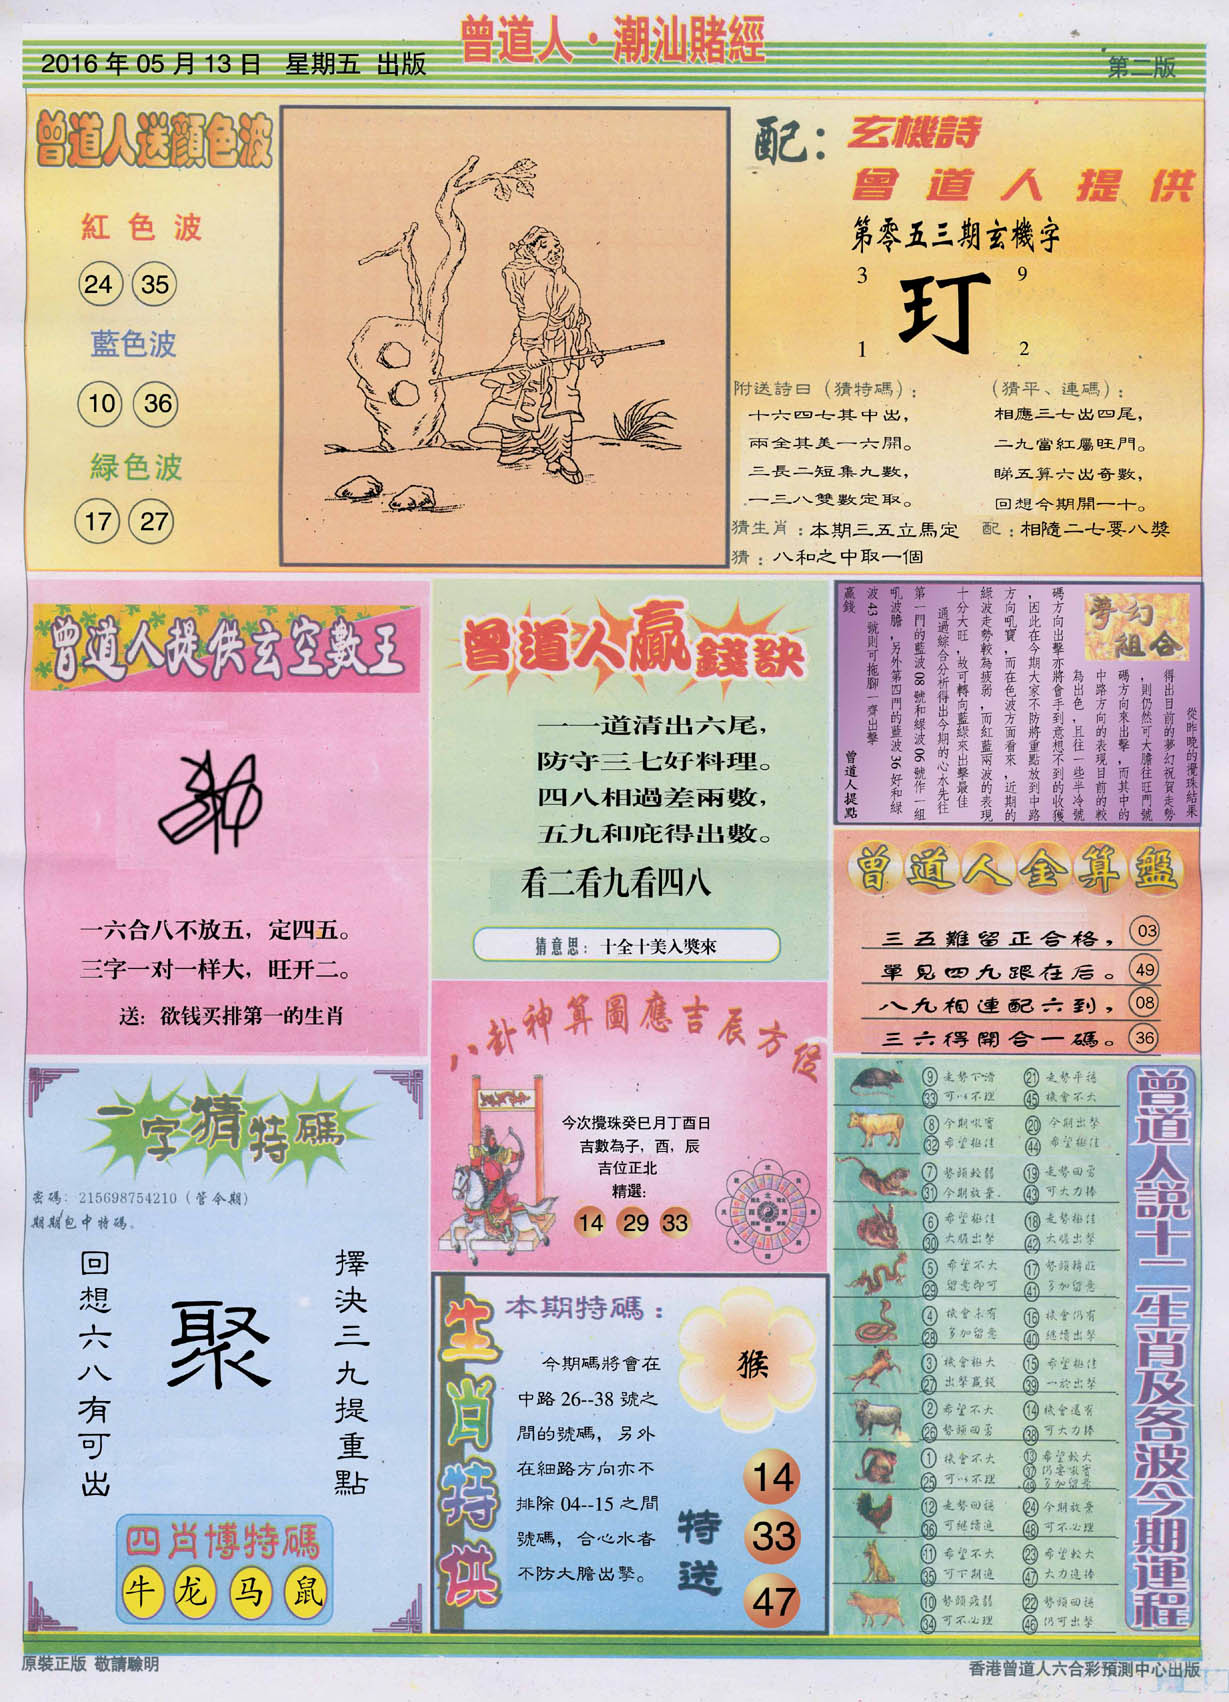 曾道人·潮汕賭經
2016年05月13日 星期五 出版
第二版
曾道人送顏色波
紅色波
24 35
藍色波
10 36
綠色波
17 27
配：玄機詩
曾道人提供
第零五三期玄機字
3 9
玎
1 2
附送詩曰（猜特碼）：
十六四七其中出，
兩全其美一六開。
三長二短集九數，
一三八雙數定取。
（猜平、連碼）：
相應三七出四尾，
二九當紅屬旺門。
睇五算六出奇數，
回想今期開一十。
猜生肖：本期三五立馬定
配：相隨二七要八獎
猜：八和之中取一個
曾道人提供玄空數王
一六合八不放五，定四五。
三字一对一样大，旺开二。
送：欲钱买排第一的生肖
曾道人贏錢訣
一一道清出六尾，
防守三七好料理。
四八相過差兩數，
五九和庇得出數。
看二看九看四八
猜意思：十全十美入獎來
夢幻
組合
從昨晚的攪珠結果
得出目前的夢幻祝賀走勢
，則仍然可大膽往旺門號
碼方向來出擊，而其中的
中路方向的表現目前的較
為出色，且往一些半冷號
碼方向出擊亦將會手到意想不到的收獲
，因此在今期大家不防將重點放到中路
方向吼寶，而在色波方面看來，近期的
綠波走勢較為疲弱，而紅藍兩波的表現
十分大旺，故可轉向藍綠來出擊最佳
通過綜合分析得出今期的心水先往
第一門的藍波08號和綠波06號作一組
吼波膽，另外第四門的藍波36好和綠
波43號則可拖腳一齊出擊
贏錢
曾道人提點
曾道人金算盤
三五難留正合格， 03
單見四九跟在后。 49
八九相連配六到， 08
三六得開合一碼。 36
八卦神算圖應吉辰方位
今次攪珠癸巳月丁酉日
吉數為子，酉，辰
吉位正北
精選：
14 29 33
一字猜特碼
密碼：215698754210（管今期）
期期包中特碼。
擇決三九提重點
聚
回想六八有可出
四肖博特碼
牛 龙 马 鼠
生肖特供
本期特碼：
今期碼將會在
中路26--38號之
間的號碼，另外
在細路方向亦不
排除04--15之間
號碼，合心水者
不防大膽出擊。
猴
特送
14
33
47
曾道人說十二生肖及各波今期運程
9 走勢下滑 21 走勢平穩
33 可以不理 45 機會不大
8 今期吼寶 20 今期出擊
32 希望極佳 44 希望極佳
7 勢頭較弱 19 走勢回勇
31 今期放棄 43 可大力捧
6 希望極佳 18 走勢極佳
30 大膽出擊 42 大膽出擊
5 希望不大 17 勢頭轉旺
29 留意即可 41 多加留意
4 機會未有 16 機會仍有
28 多加留意 40 繼續出擊
3 機會極大 15 希望極佳
27 出擊贏錢 39 一於出擊
2 希望不大 14 機會還有
26 勢頭回勇 38 可大力捧
1 機會不大 13 希望較大
37 仍要吼寶
25 可以不理 49 多加留意
12 走勢回穩 24 今期放棄
36 可繼續進 48 可不必理
11 希望不大 23 希望較大
35 可下期進 47 大力進捧
10 勢頭疲弱 22 勢頭回穩
34 可不必理 46 仍可出擊
原裝正版 敬請驗明
香港曾道人六合彩預測中心出版